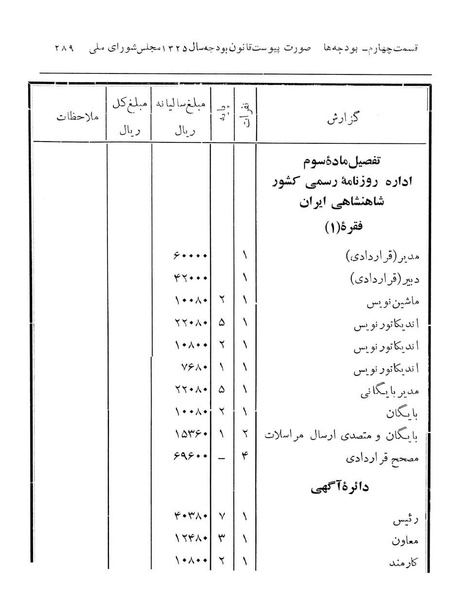 قسمت چهارم – بودجه‌ها صورت پیوست قانون بودجه سال ۱۳۲۵ مجلس شورای ملی ۲۸۹
گزارش نفرات پایه مبلغ سالیانه ریال مبلغ کل ریال ملاحظات
تفصیل مادهٔ سوم
اداره روزنامهٔ رسمی کشور
شاهنشاهی ایران
فقرهٔ (۱)
مدیر (قراردادی) ۱ ۶۰۰۰۰
دبیر (قراردادی) ۱ ۴۲۰۰۰
ماشین نویس ۱ ۲ ۱۰۰۸۰
اندیکاتور نویس ۱ ۵ ۲۲۰۸۰
اندیکاتور نویس ۱ ۲ ۱۰۸۰۰
اندیکاتور نویس ۱ ۱ ۷۶۸۰
مدیر بایگانی ۱ ۵ ۲۲۰۸۰
بایگان ۱ ۲ ۱۰۰۸۰
بایگان و متصدی ارسال مراسلات ۲ ۱ ۱۵۳۶۰
مصحح قراردادی ۴ – ۶۹۶۰۰
دائرهٔ آگهی
رئیس ۱ ۷ ۴۰۳۸۰
معاون ۱ ۳ ۱۲۴۸۰
کارمند ۱ ۲ ۱۰۸۰۰